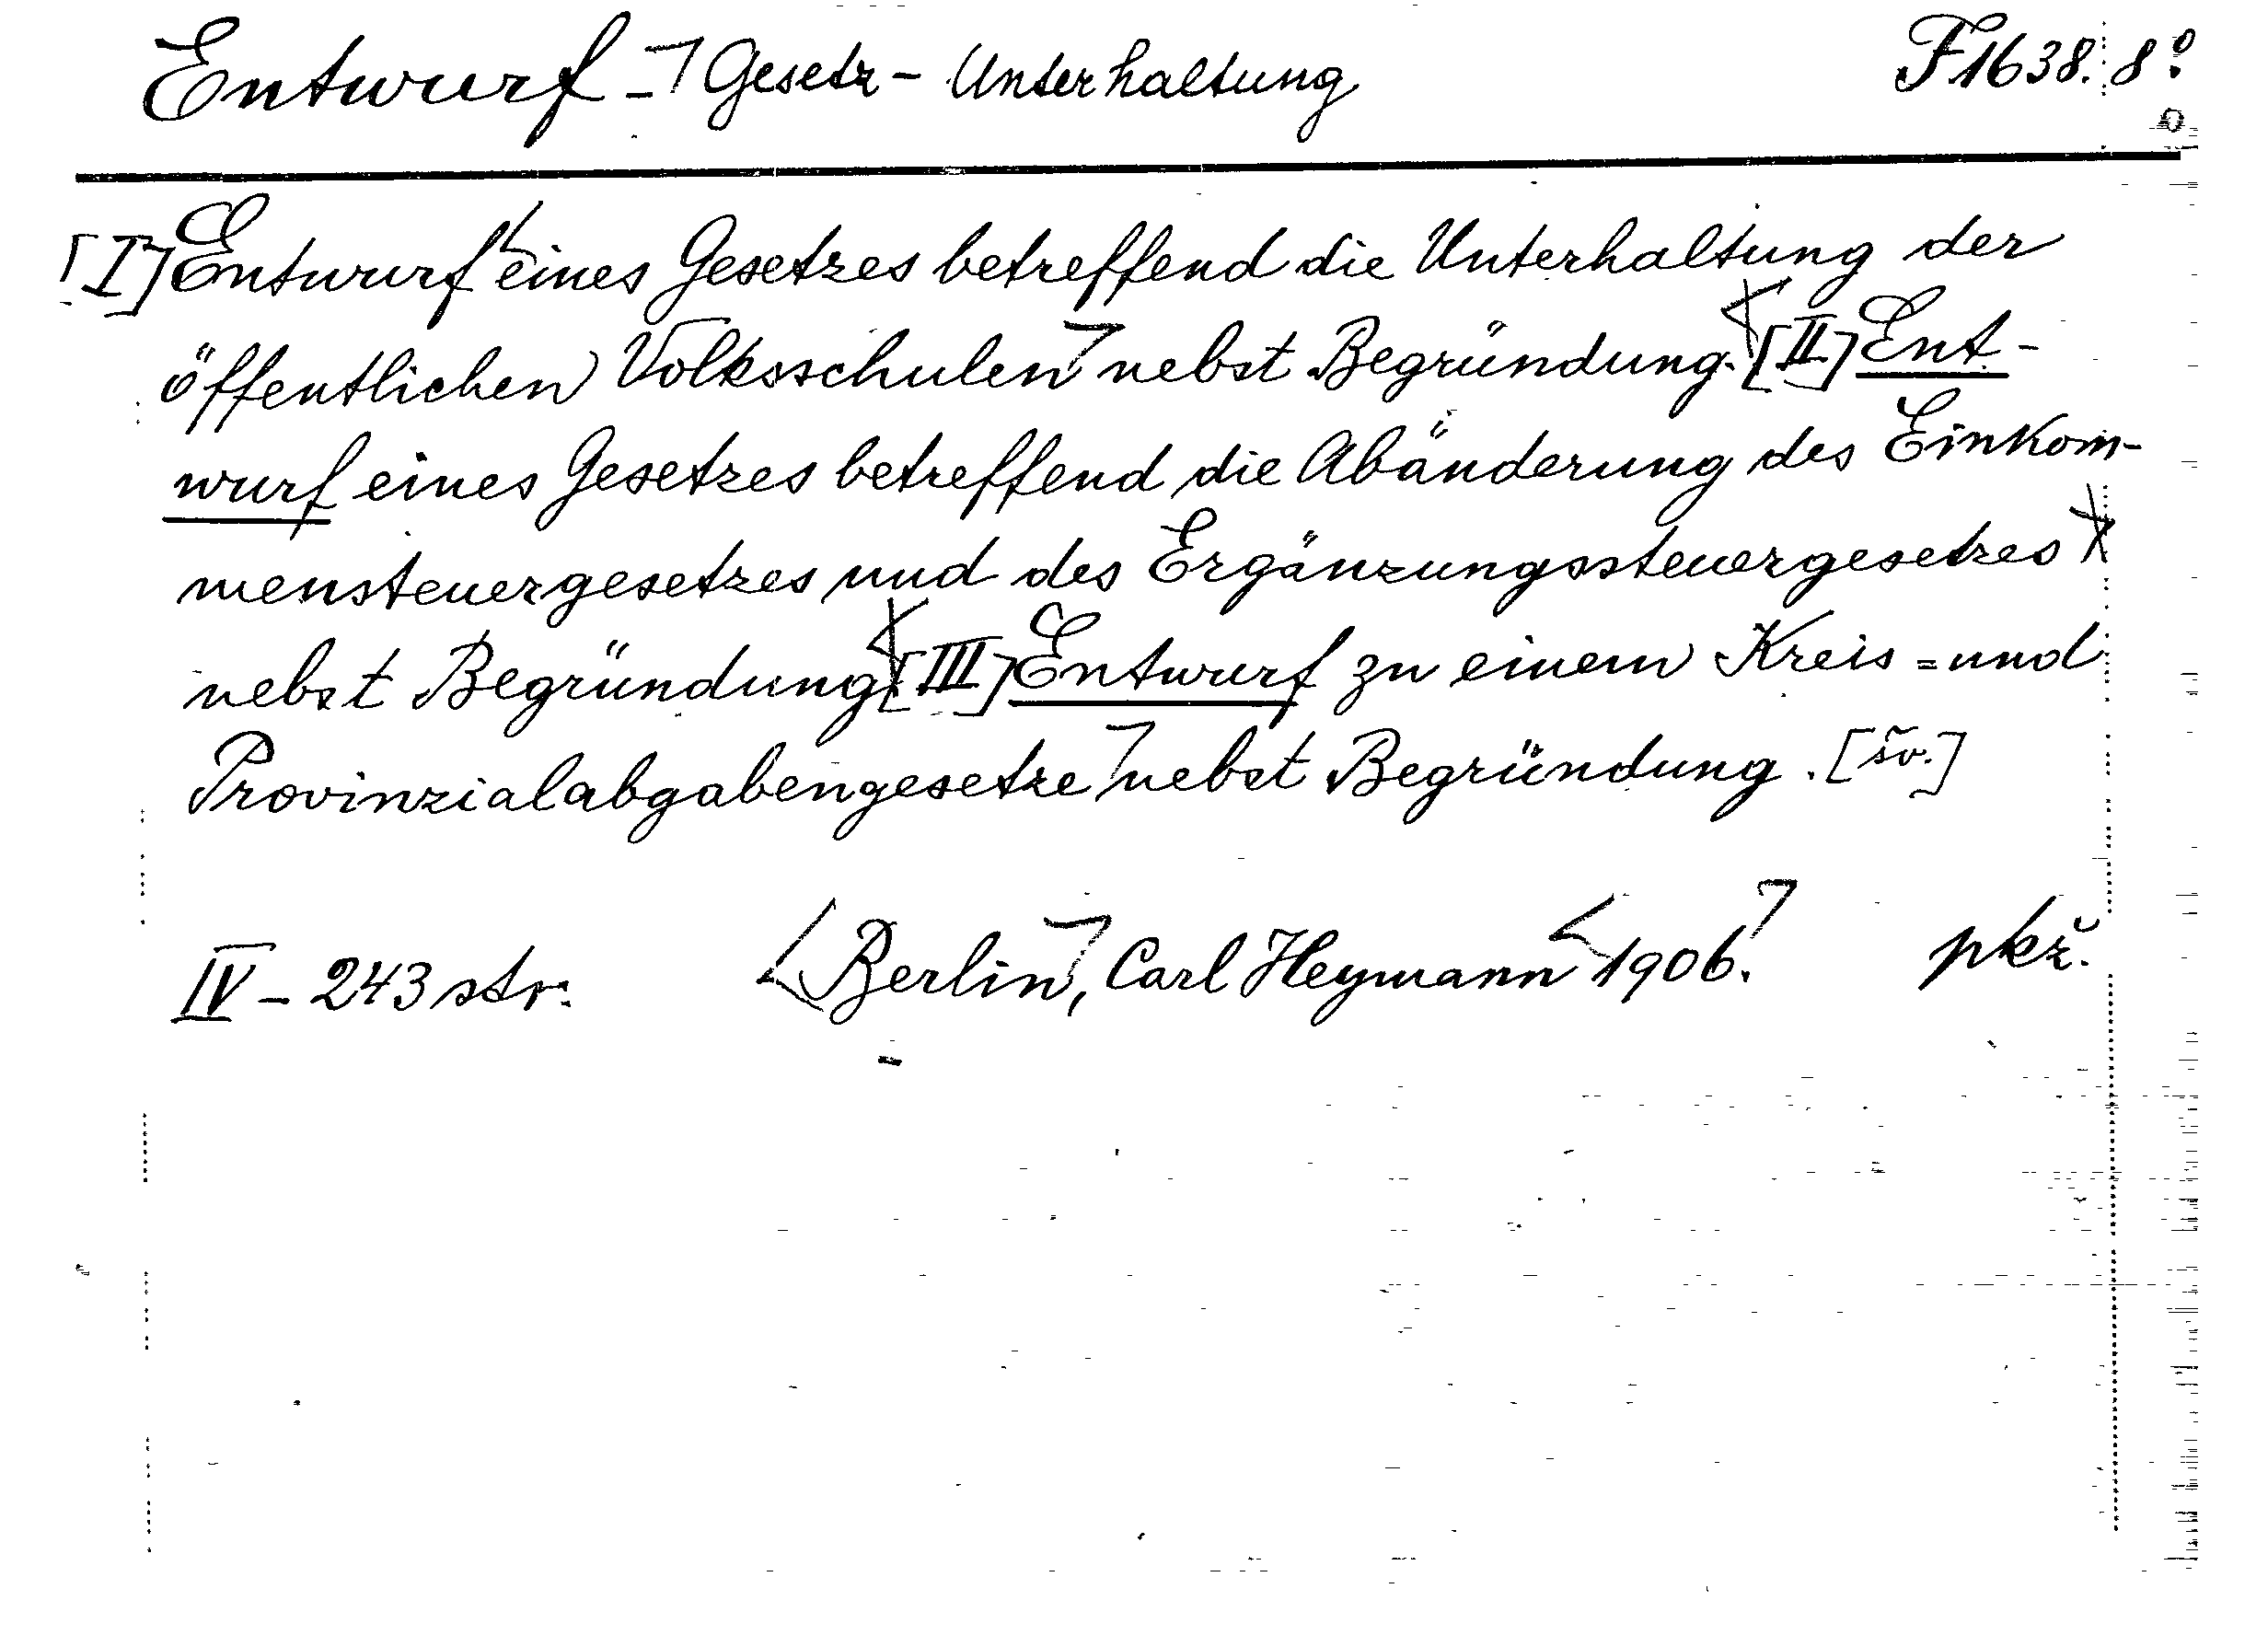 Entwurf - Gesetz - Unterhaltung F1638. 8°.
[I] Entwurf eines Gesetzes betreffend die Unterhaltung der
öffentlichen Volksschulen nebst Begründung. [II] Ent-
wurf eines Gesetzes betreffend die Abänderung des Einkom-
mensteuergesetzes und des Ergänzungssteuergesetzes
nebst Begründung [III] Entwurf zu einem Kreis=und
Provinzialabgabengesetze nebst Begründung. [šv.]
IV - 243 str. Berlin, Carl Heymann 1906. pkž.